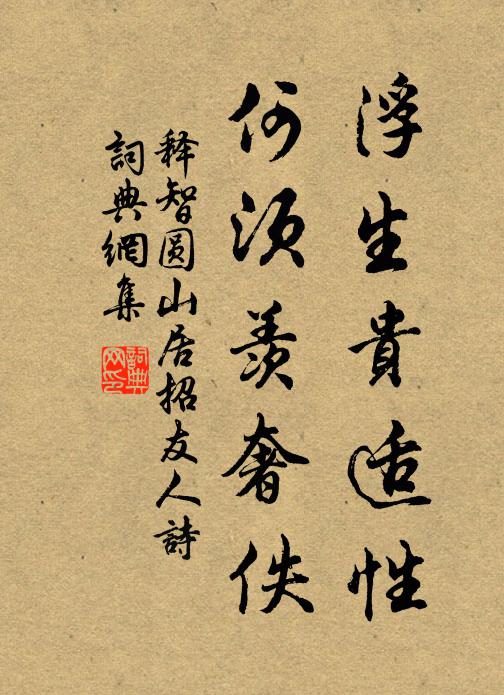 浮生貴适性
何須羨奢佚
释智圓山居招友人詩
詞典網集
詞典網印